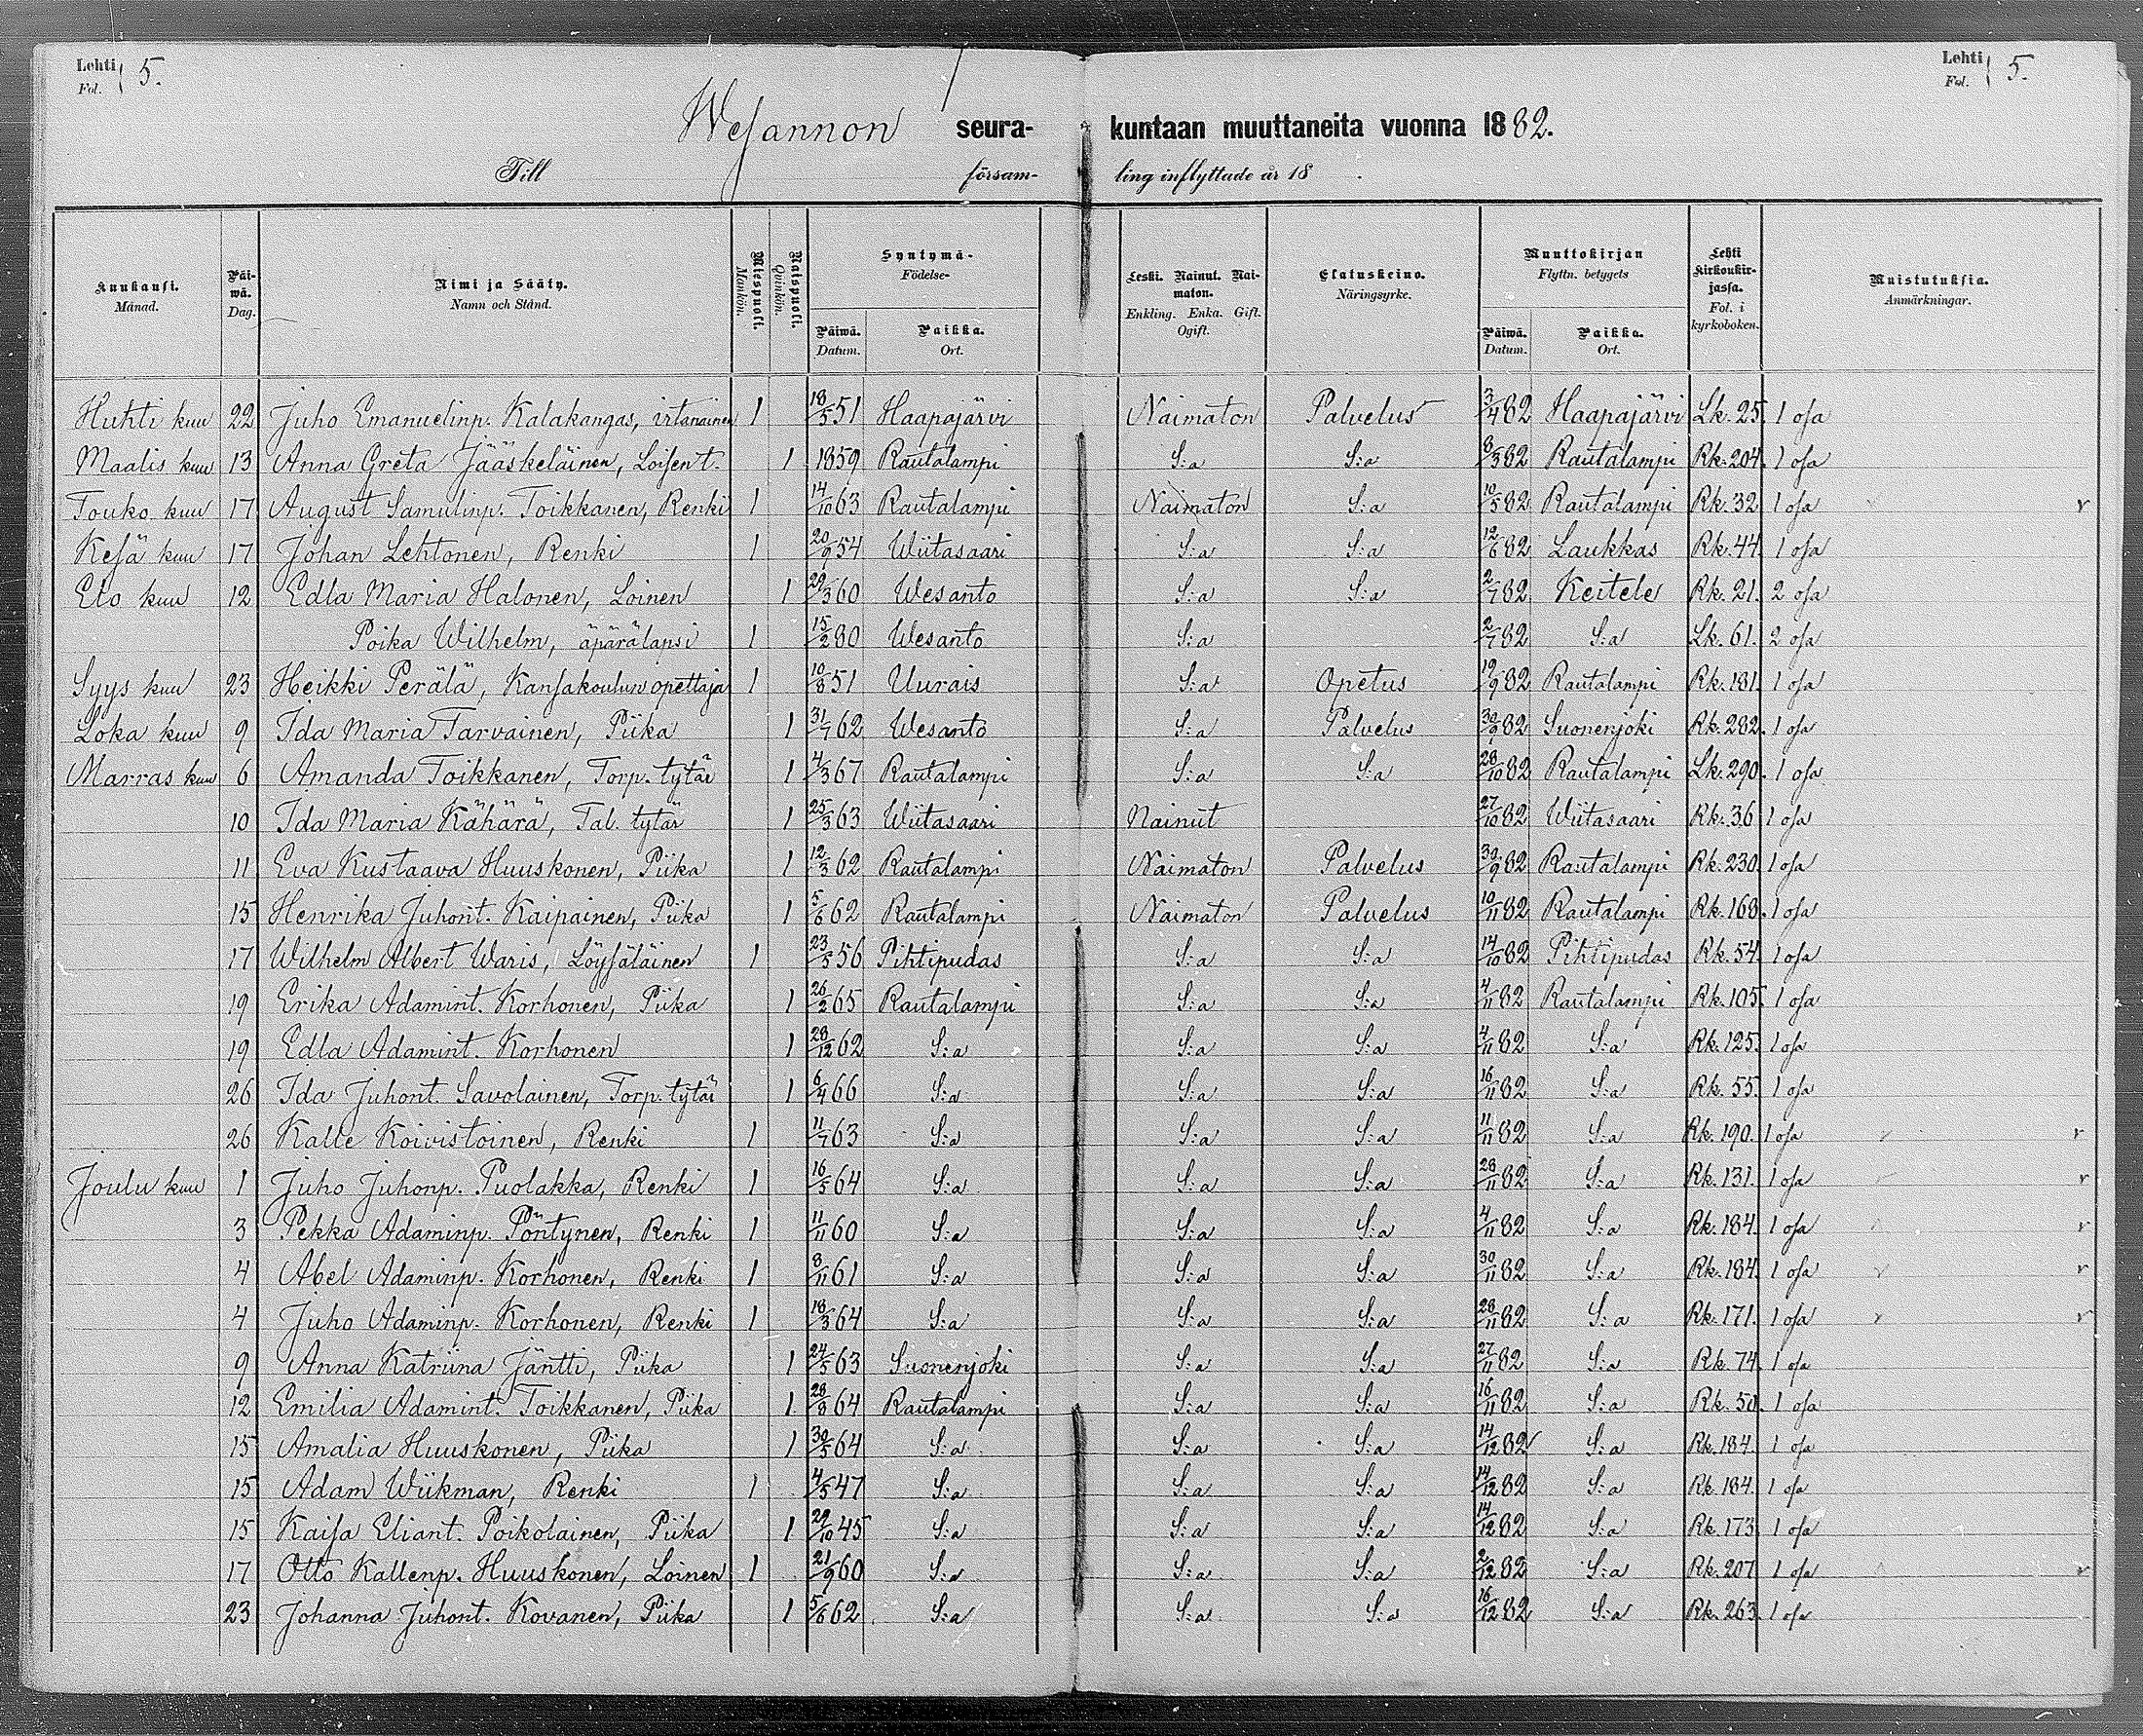 Lehti Fol. 5.
Lehti Fol. 5.
Wesannon seura- kuntaan muuttaneita vuonna 1882.
Till försam- ling inflyttade år 18 .
Kuukausi. Månad. Päi-wä. Dag. Nimi ja Sääty. Namn och Stånd. Miespuoli. Mankön. Naispuoli. Quinkön. Syntymä- Födelse- Päiwä. Datum. Paikka. Ort. Leski. Nainut. Nai-maton. Enkling. Enka. Gift. Ogift. Elatuskeino. Näringsyrke. Muuttokirjan Flyttn. betygets Päiwä. Datum. Paikka. Ort. Lehti Kirkonkir-jassa. Fol. i kyrkoboken. Muistutuksia. Anmärkningar.
Huhti kuu 22 Juho Emanuelinp. Kalakangas, irtanainen 1 18/5 51 Haapajärvi Naimaton Palvelus 3/4 82 Haapajärvi Lk. 25. 1 osa
Maalis kuu 13 Anna Greta Jääskeläinen, Loisen t. 1 1859 Rautalampi S:a S:a 8/3 82 Rautalampi Rk. 204. 1 osa
Touko kuu 17 August Samulinp. Toikkanen, Renki 1 14/10 63 Rautalampi Naimaton S:a 10/5 82 Rautalampi Rk. 32 1 osa v
Kesä kuu 17 Johan Lehtonen, Renki 1 20/9 54 Wiitasaari S:a S:a 12/6 82 Laukkas Rk. 44. 1 osa
Elo kuu 12 Edla Maria Halonen, Loinen 1 29/3 60 Wesanto S:a S:a 2/7 82 Keitele Rk. 21. 2 osa
Poika Wilhelm, äpärälapsi 1 15/2 80 Wesanto S:a 2/7 82 S:a Lk. 61. 2 osa
Syys kuu 23 Heikki Perälä, Kansakoulun opettaja 1 10/8 51 Uurais S:a Opetus 19/9 82 Rautalampi Rk. 181. 1 osa
Loka kuu 9 Ida Maria Tarvainen, Piika 1 31/7 62 Wesanto S:a Palvelus 30/9 82 Suonenjoki Rk. 282. 1 osa
Marras kuu 6 Amanda Toikkanen, Torp. tytär 1 4/3 67 Rautalampi S:a S:a 28/10 82 Rautalampi Lk. 290. 1 osa
10 Ida Maria Kähärä, Tal. tytär 1 25/3 63 Wiitasaari Nainut 27/10 82 Wiitasaari Rk. 36 1 osa
11 Eva Kustaava Huuskonen, Piika 1 12/3 62 Rautalampi Naimaton Palvelus 30/9 82 Rautalampi Rk. 230. 1 osa
15 Henrika Juhont. Kaipainen, Piika 1 5/6 62 Rautalampi Naimaton Palvelus 10/11 82 Rautalampi Rk. 168. 1 osa
17 Wilhelm Albert Waris, Löysäläinen 1 23/5 56 Pihtipudas S:a S:a 14/10 82 Pihtipudas Rk. 54. 1 osa
19 Erika Adamint. Korhonen, Piika 1 26/2 65 Rautalampi S:a S:a 4/11 82 Rautalampi Rk. 105. 1 osa
19 Edla Adamint. Korhonen 1 28/12 62 S:a S:a S:a 4/11 82 S:a Rk. 125. 1 osa
26 Ida Juhont. Savolainen, Torp. tytär 1 6/4 66 S:a S:a S:a 16/11 82 S:a Rk. 55. 1 osa
26 Kalle Koivistoinen, Renki 1 11/7 63 S:a S:a S:a 11/11 82 S:a Rk. 190. 1 osa v v
Joulu kuu 1 Juho Juhonp. Puolakka, Renki 1 16/5 64 S:a S:a S:a 28/11 82 S:a Rk. 131. 1 osa v v
3 Pekka Adaminp. Pöntynen, Renki 1 11/11 60 S:a S:a S:a 4/11 82 S:a Rk. 184. 1 osa v
4 Abel Adaminp. Korhonen, Renki 1 8/11 61 S:a S:a S:a 30/11 82 S:a Rk. 184. 1 osa v v
4 Juho Adaminp. Korhonen, Renki 1 18/3 64 S:a S:a S:a 28/11 82 S:a Rk. 171. 1 osa v v
9 Anna Katriina Jäntti, Piika 1 24/5 63 Suonenjoki S:a S:a 27/11 82 S:a Rk. 74 1 osa
12 Emilia Adamint. Toikkanen, Piika 1 28/9 64 Rautalampi S:a S:a 16/11 82 S:a Rk. 50. 1 osa
15 Amalia Huuskonen, Piika 1 30/5 64 S:a S:a S:a 14/12 82 S:a Rk. 184. 1 osa
15 Adam Wiikman, Renki 1 4/5 47 S:a S:a S:a 14/12 82 S:a Rk. 184. 1 osa
15 Kaisa Eliant. Poikolainen, Piika 1 29/10 45 S:a S:a S:a 14/12 82 S:a Rk. 173 1 osa
17 Otto Kallenp. Huuskonen, Loinen 1 21/9 60 S:a S:a S:a 2/12 82 S:a Rk. 207 1 osa v
23 Johanna Juhont. Kovanen, Piika 1 5/6 62 S:a S:a S:a 16/12 82 S:a Rk. 263. 1 osa